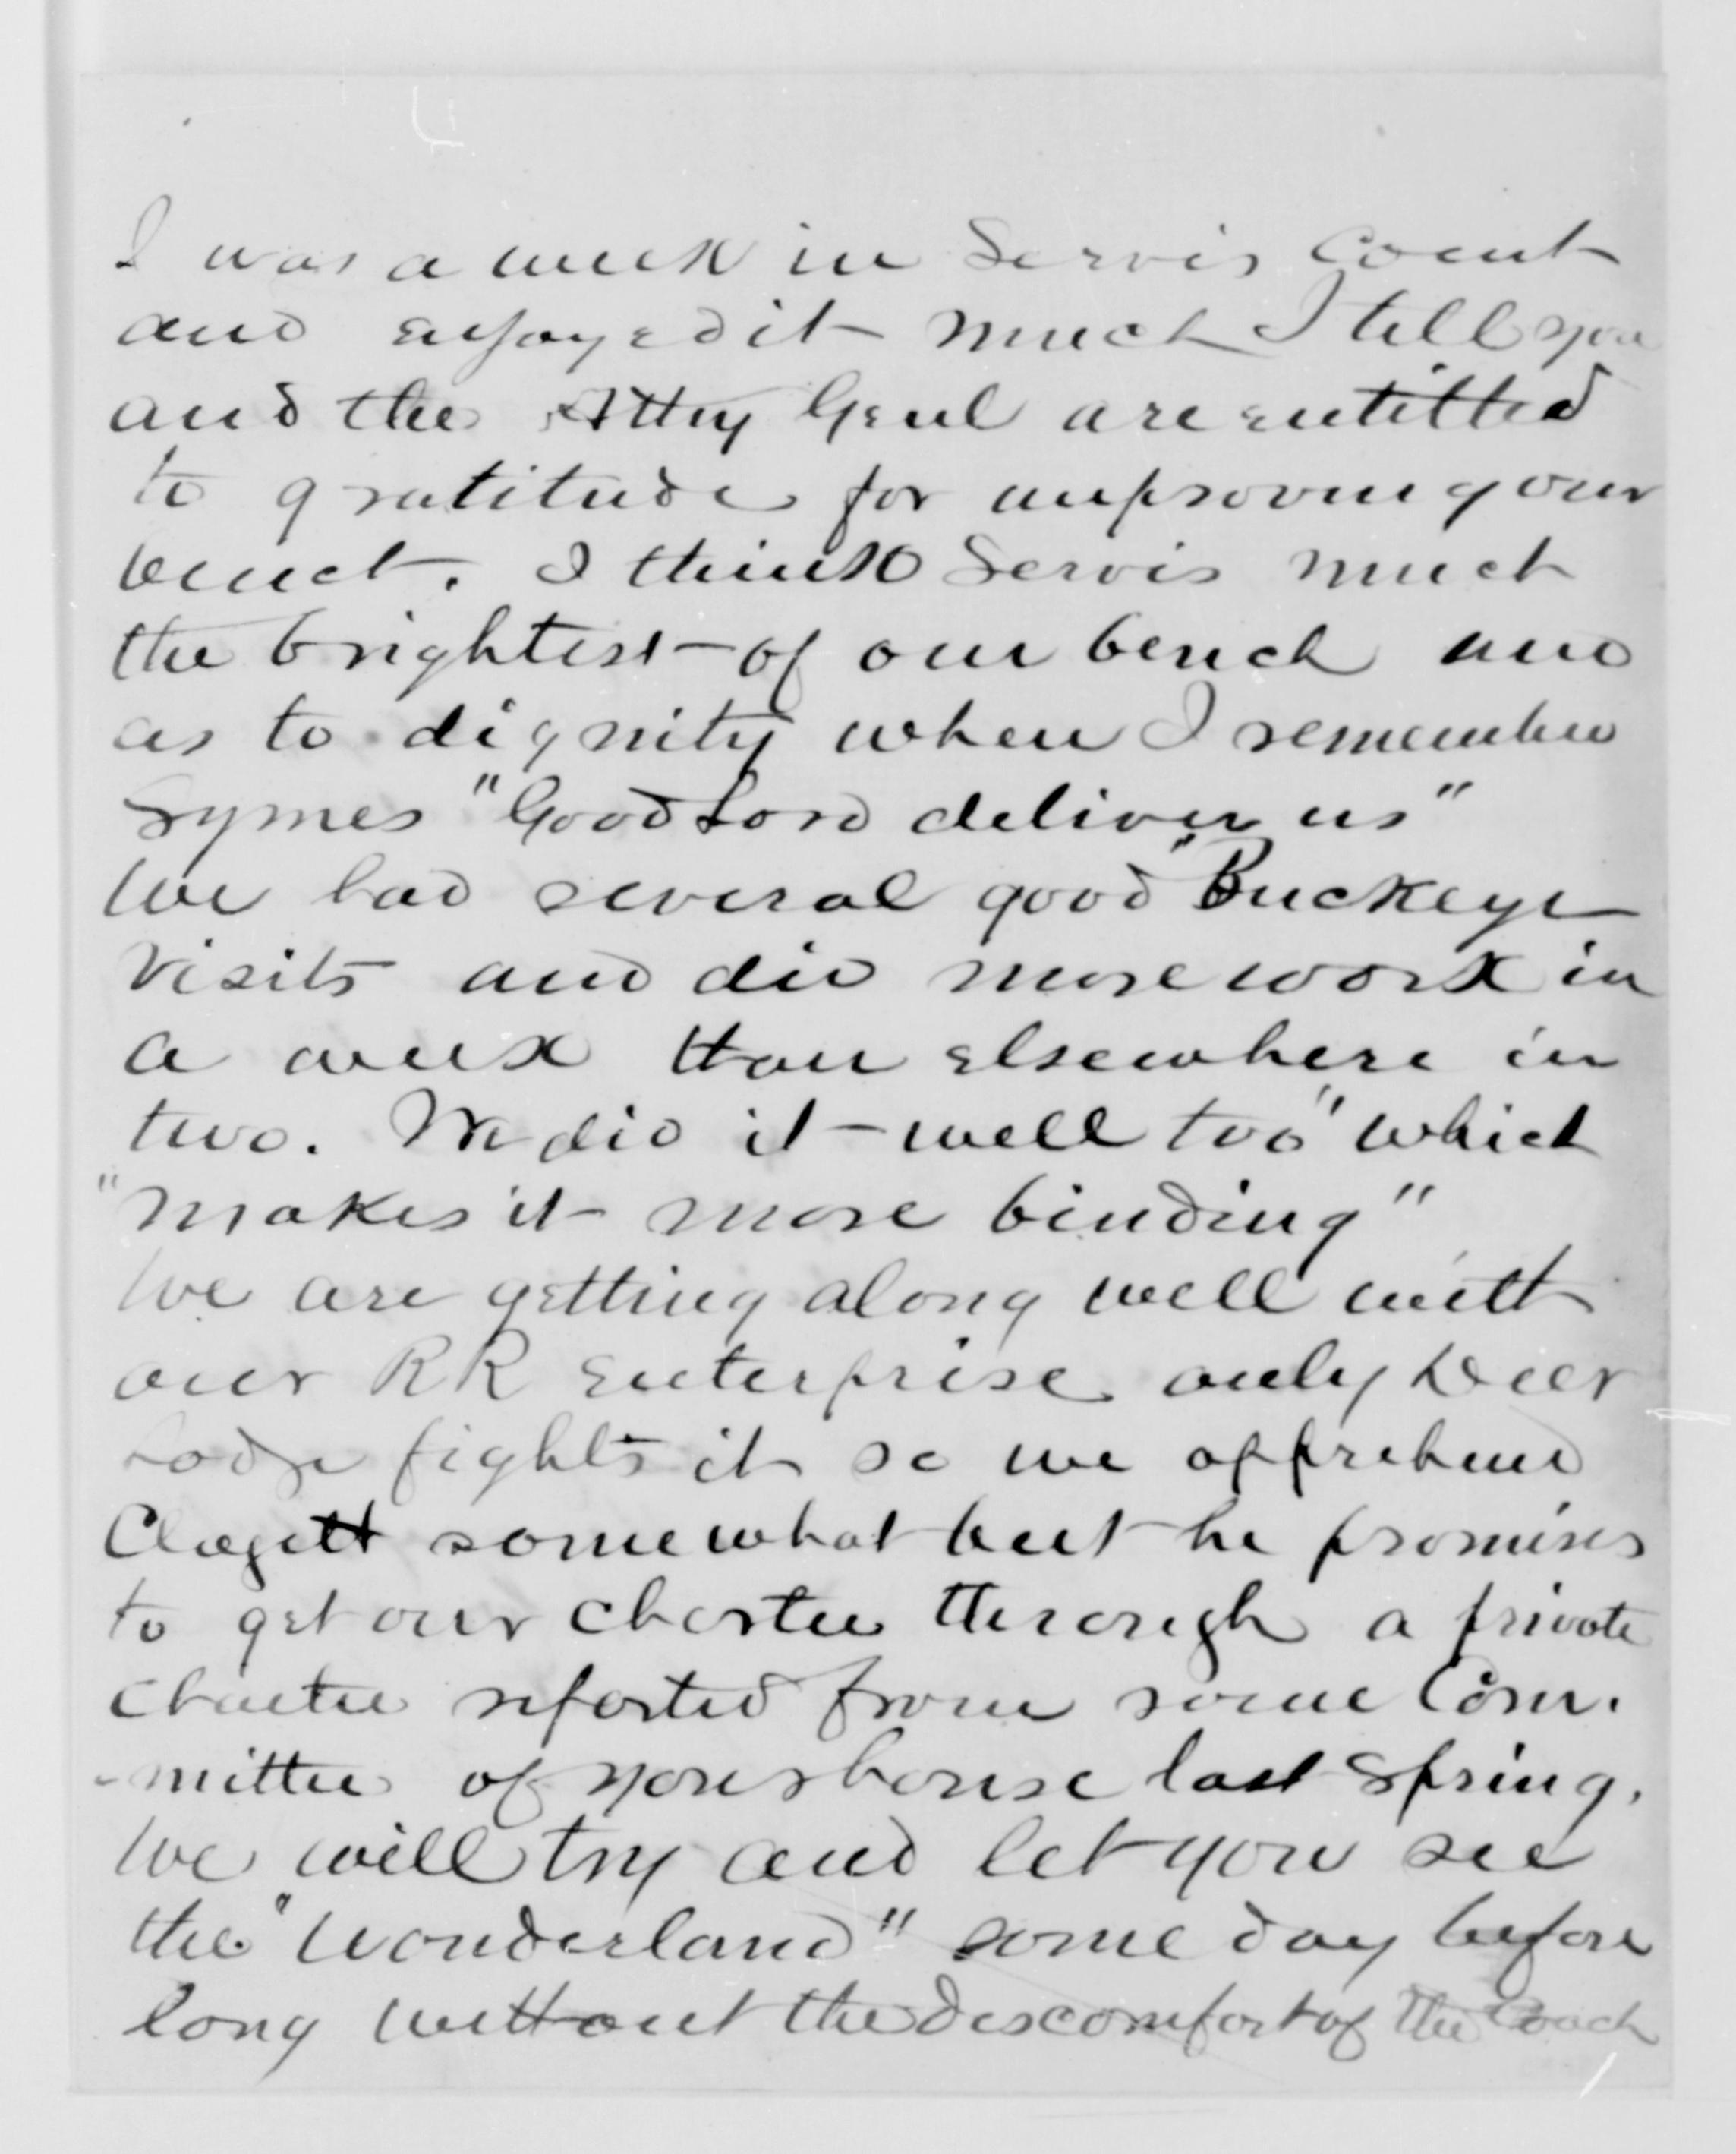 I was a week in Servis Court
and enjoyed it much I tell you
and the Atty Genl are entitled
to gratitude for improving our
bench. I think Servis much
the brightest of our bench and
as to dignity when I remember
Symes "Good Lord deliver us"
We had several good "Buckeye
visits and did more work in
a week than elsewhere in
two. We did it well too "which
"makes it more binding"
We are getting along well with
our RR Enterprise only Deer
Lodge fights it so we apprehend
Clagett somewhat but he promises
to get our charter through a private
charter reported from some Com.
-mittee of your house last Spring.
We will try and let you see
the "Wonderland" some day before
long without the discomfort of the Coach